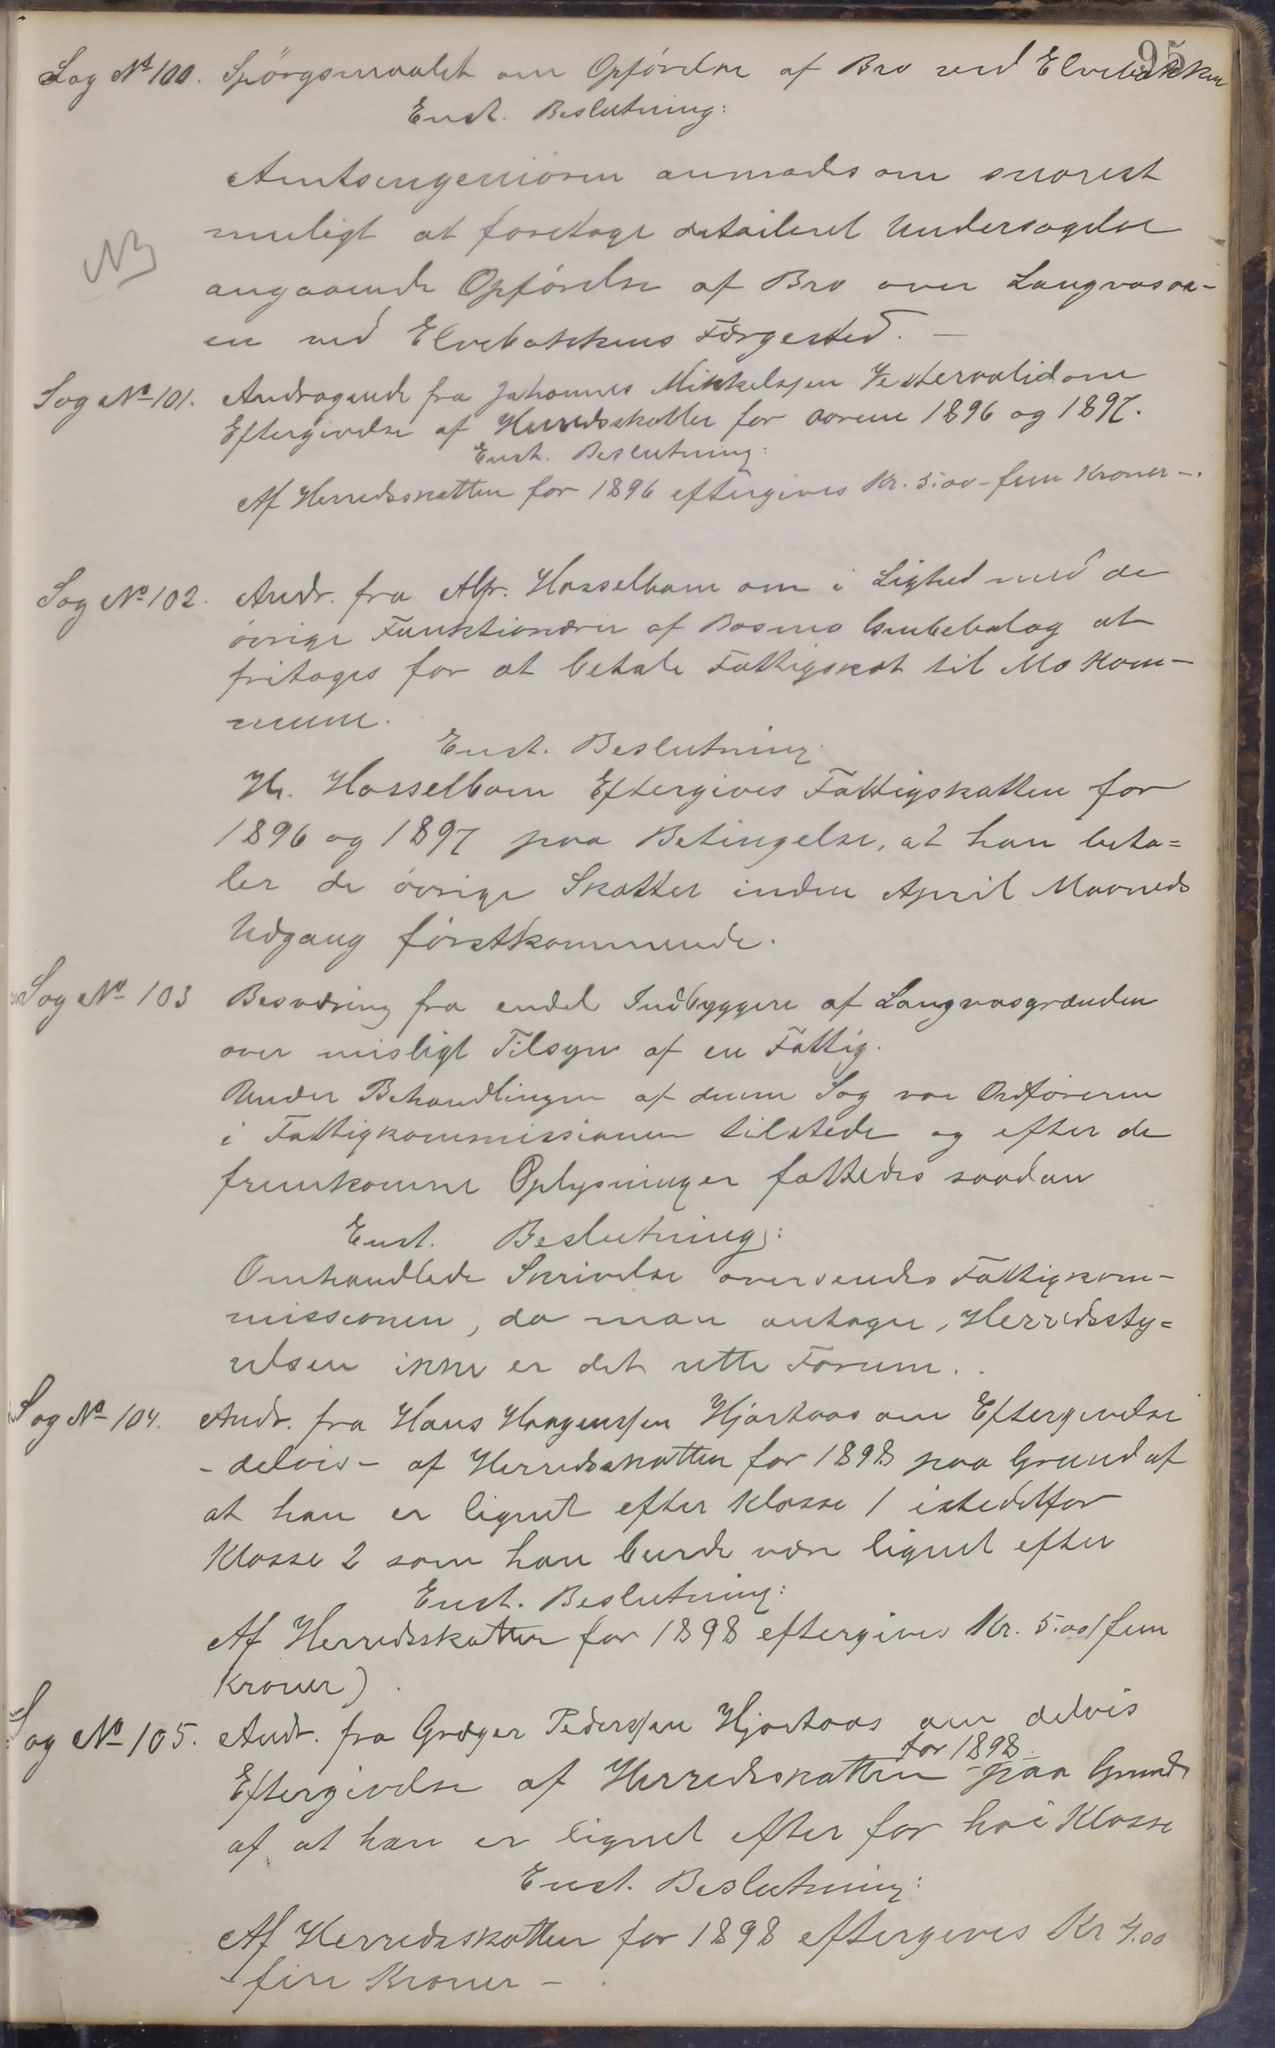 95
Sag No 100. Spörgsmaalet om Opförelse af Bro ved Elvebakken
Enst. Beslutning:
Amtsingeniören anmodes om snarest
muligt at foretage detaileret Undersøgelse
NB
angaaende Opförelse af Bro over Langvasaa-
en ved Elvebakkens Færgested. —
Sag No 101. Andragende fra Johannes Mikkelsen om
Eftergivelse af Herredsskatter for aarene 1896 og 1897.
Enst. Beslutning:
Af Herredsskatten for 1896 eftergives Kr. 5.00 - fem Kroner -.
Sag No 102. Andr. fra Alfr. Hasselbom om i Lighed med de
övrige Funktionærer af Bosmo Grubebolag at
fritages for at betale Fattigskat til Mo Kom-
mune.
Enst. Beslutning:
Hr. Hasselbom Eftergives Fattigskatten for
1896 og 1897 paa Betingelse, at han beta=
ler de övrige Skatter inden April Maaneds
Udgang förstkommende.
Sag No 103 Besværing fra endel Indbyggere af Langvasgrænden
over misligt Tilsyn af en Fattig.
Under Behandlingen af denne Sag var Ordföreren
i Fattigkommissionen tilstede og efter de
fremkomne Oplysninger fattedes saadan
Enst. Beslutning:
Omhandlede Skrivelse oversendes Fattigkom-
missionen, da man antager, Herredssty=
relsen ikke er det rette Forum.
Sag No 104. Andr. fra Hans Haagenssen Hjartaas om Eftergivelse
- delvis - af Herredsskatten for 1898 paa Grund af
at han er lignet efter Klasse 1 istedetfor
Klasse 2 som han burde være lignet efter
Enst. Beslutning:
Af Herredsskatten for 1898 eftergives Kr. 5.00 (fem
Kroner).
Sag No 105. Andr. fra Græger Pederssen Hjartaas om delvis
for 1898
Eftergivelse af Herredsskatten paa Grund
af at han er lignet efter for høi Klasse
Enst. Beslutning:
Af Herredsskatten for 1898 eftergives Kr 4.00
- fire Kroner - .